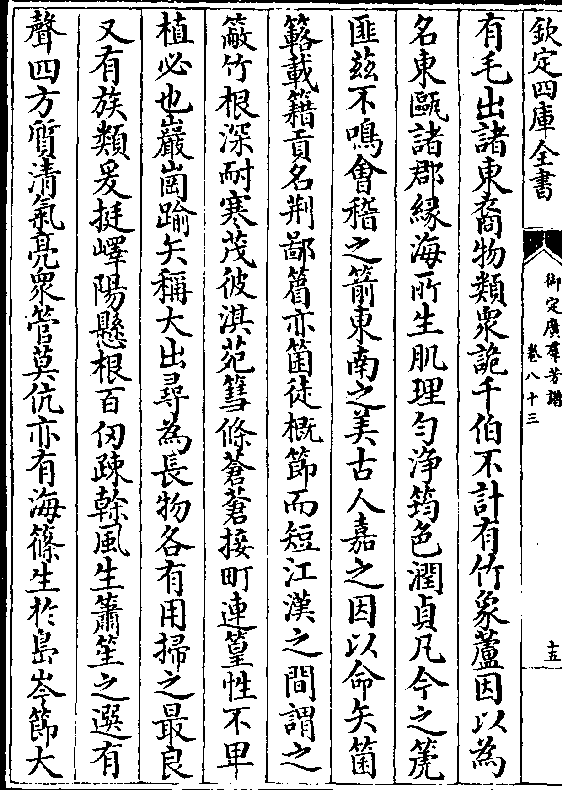 欽定四庫全書
御定廣羣芳譜
卷八十三
十五
有毛出諸東裔物類衆詭千伯不計有竹象蘆因以為
名東甌諸郡緣海所生肌理勻浄筠色潤貞凡今之箎
匪兹不鳴會稽之箭東南之美古人嘉之因以命矢箘
簵載籍貢名荆鄙篃亦箘徒概節而短江漢之間謂之
䉠竹根深耐寒茂彼淇苑篲條蒼蒼接町連篁性不卑
植必也巖崗踰矢稱大出尋為長物各有用掃之最良
又有族類爰挺嶧陽懸根百仞疎幹風生簫笙之選有
聲四方質清氣亮衆管莫伉亦有海篠生於島岑節大